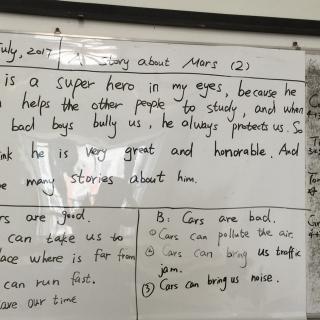 July, 2017
A Story about Mars (2)
is a super hero in my eyes, because he
helps the other people to study, and when
bad boys bully us, he always protects us. So
ink he is very great and honorable. And
many stories about him.
rs are good.
can take us to
lace where is far from
can run fast.
ave our time
B: Cars are bad.
① Cars can pollute the air.
② Cars can bring us traffic
jam.
③ Cars can bring us noise.